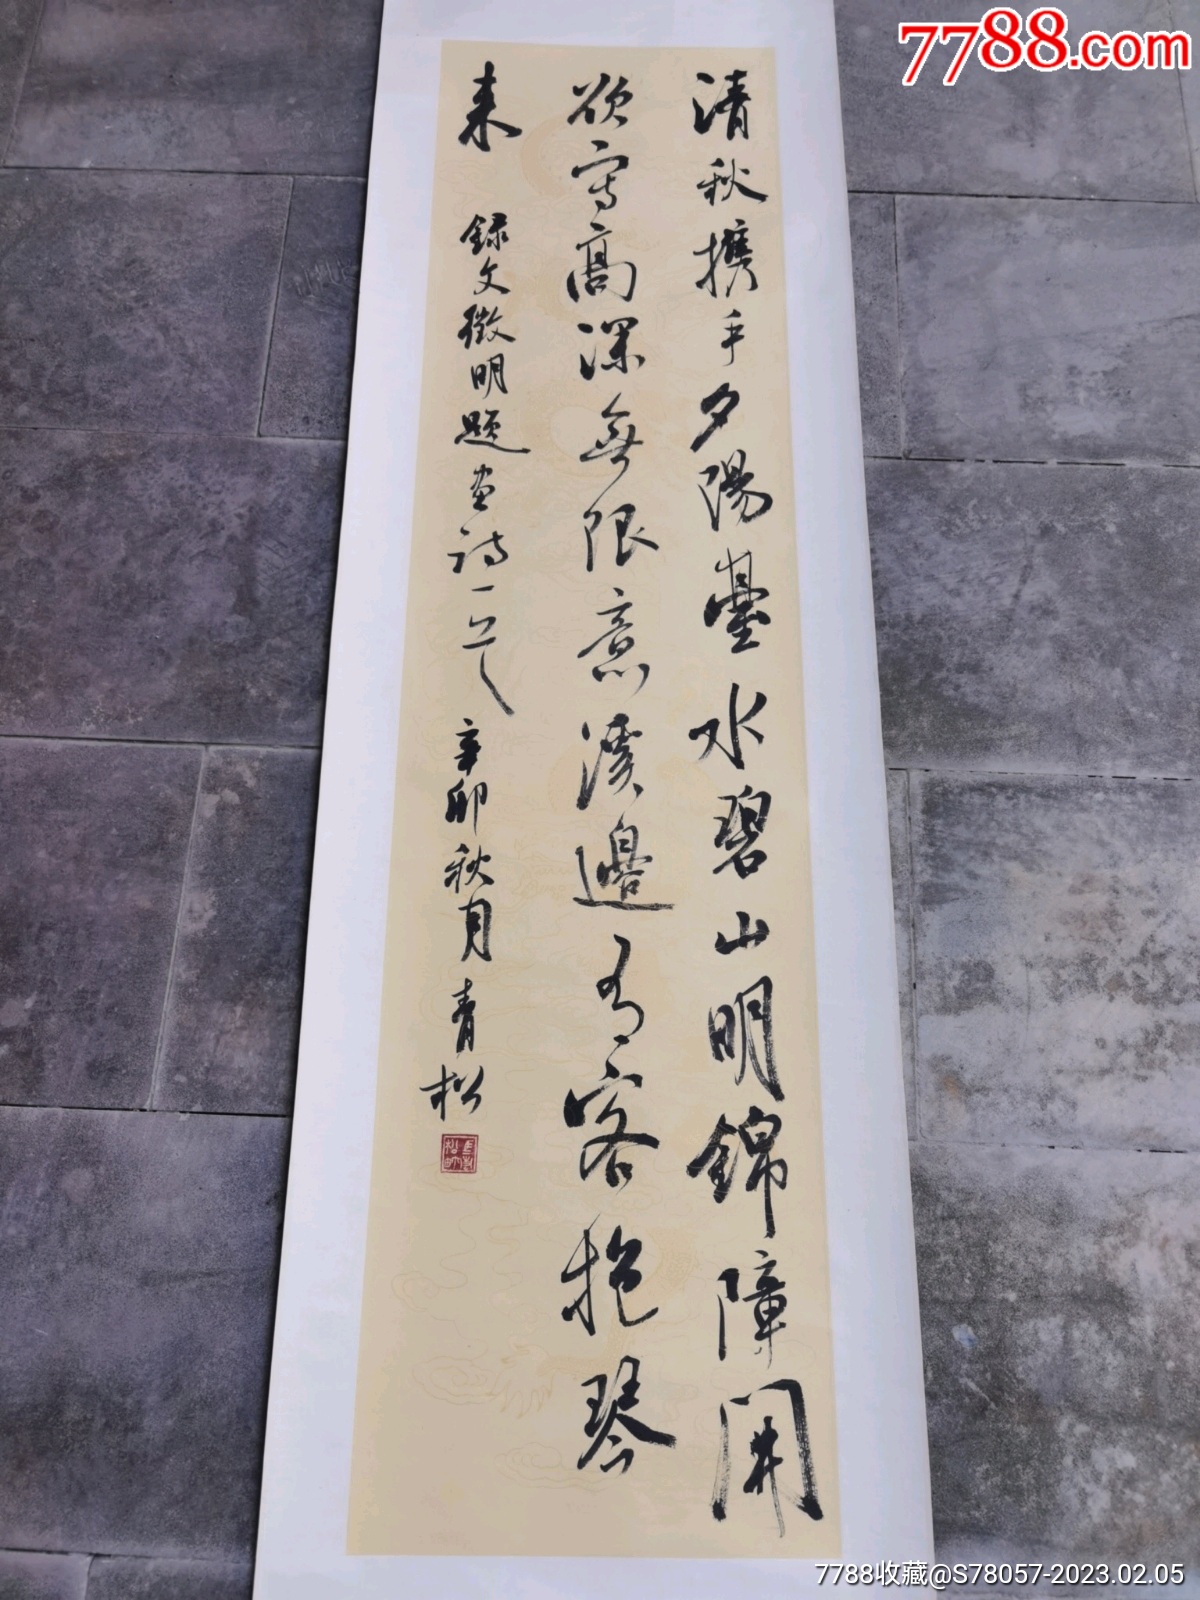 7788.com
清秋携手夕陽臺水碧山明錦障開
欲寫高深無限意溪邊有客抱琴
来
録文徵明題画詩一首
辛卯秋月青松
7788收藏@S78057-2023.02.05